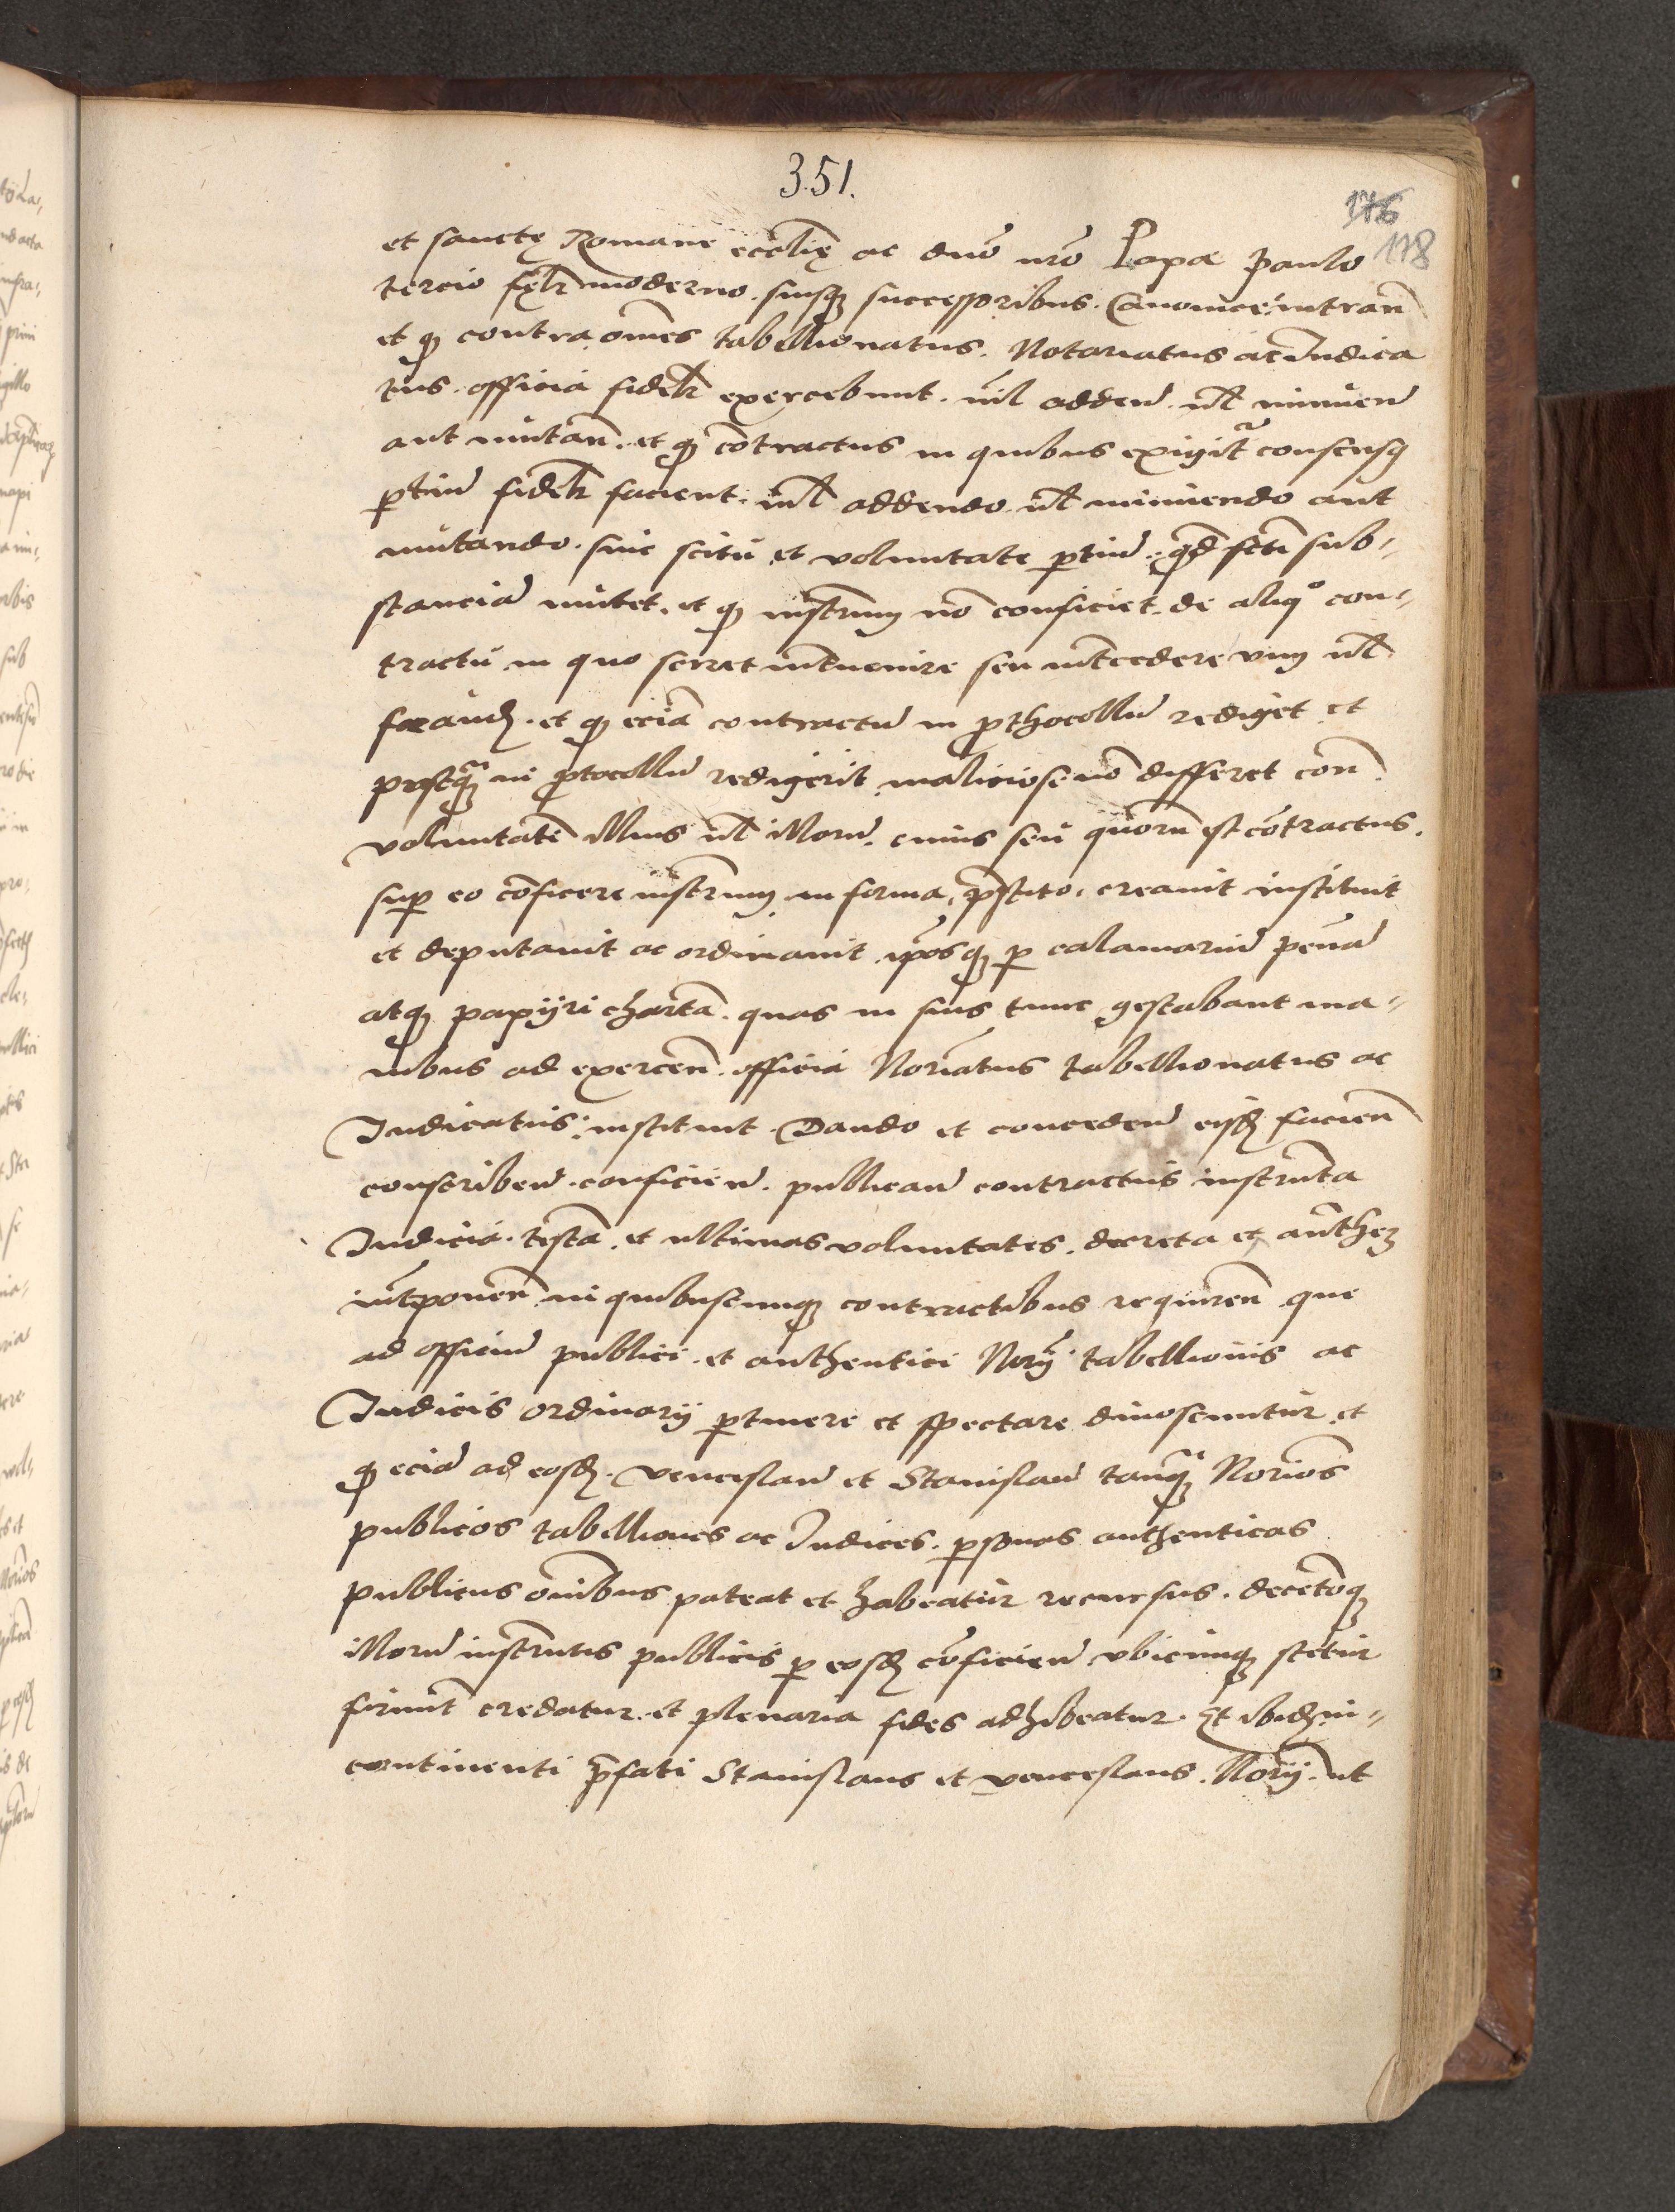 351.
176
118
et sanctę Romane ecclię ac dno nro Papa Paulo
tercio fęlr moderno. suisq successoribus. Canonice intran
et q contra omes tabellionatus. Notariatus ac Iudica
tus. officia fidelr exercebunt. nil adden. ul minuen
aut mutan. et q contractus in quibus exigitr consensq
ptiu fidelr facient. nil addendo. ul minuendo aut
mutando. sine scitu et voluntate ptiu. qd fcti sub„
stanciã mutet. et q instrum no conficiet. de aliqo con„
tractu in quo sciret interuenire seu intercedere vim ul
fraud. et q eciã contractu in prthocollu rediget et
postq in prtocollu redigerit maliciose no differet con
voluntatẽ illius ul illoru. cuius seu quoru est contractus.
sup eo conficere instrum in forma, prestito. creauit instituit
et deputauit ac ordinauit. ipsosq p calamariu penã
atq papyri chartã. quas in suis tunc gestabant ma„
nibus ad exercen. officia Noriatus tabellionatus ac
Iudicatus: instituit. Dando et conceden eisd facien
conscriben. conficien. publican contractus instrumta
Iudicia. testa. et ultimas voluntates. decreta et authez
interponen in quibuscunq contractibus requiren que
ad officiu publici et authentici Norij tabellionis ac
Iudicis ordinarij ptinere et spectare dinoscuntur. et
q eciã ad eosd. Venceslau et Stanislau tanq Norios
publicos tabelliones ac Iudices. psonas authenticas
publicus oibus pateat et habeatur recursus. decetoq
illoru instrumtis publicis p eosd conficien vbicunq stetur
firmit credatur. et plenaria fides adhibeatur. Et ibid in„
continenti prefati Stanislaus et Venceslaus. Norij. ut